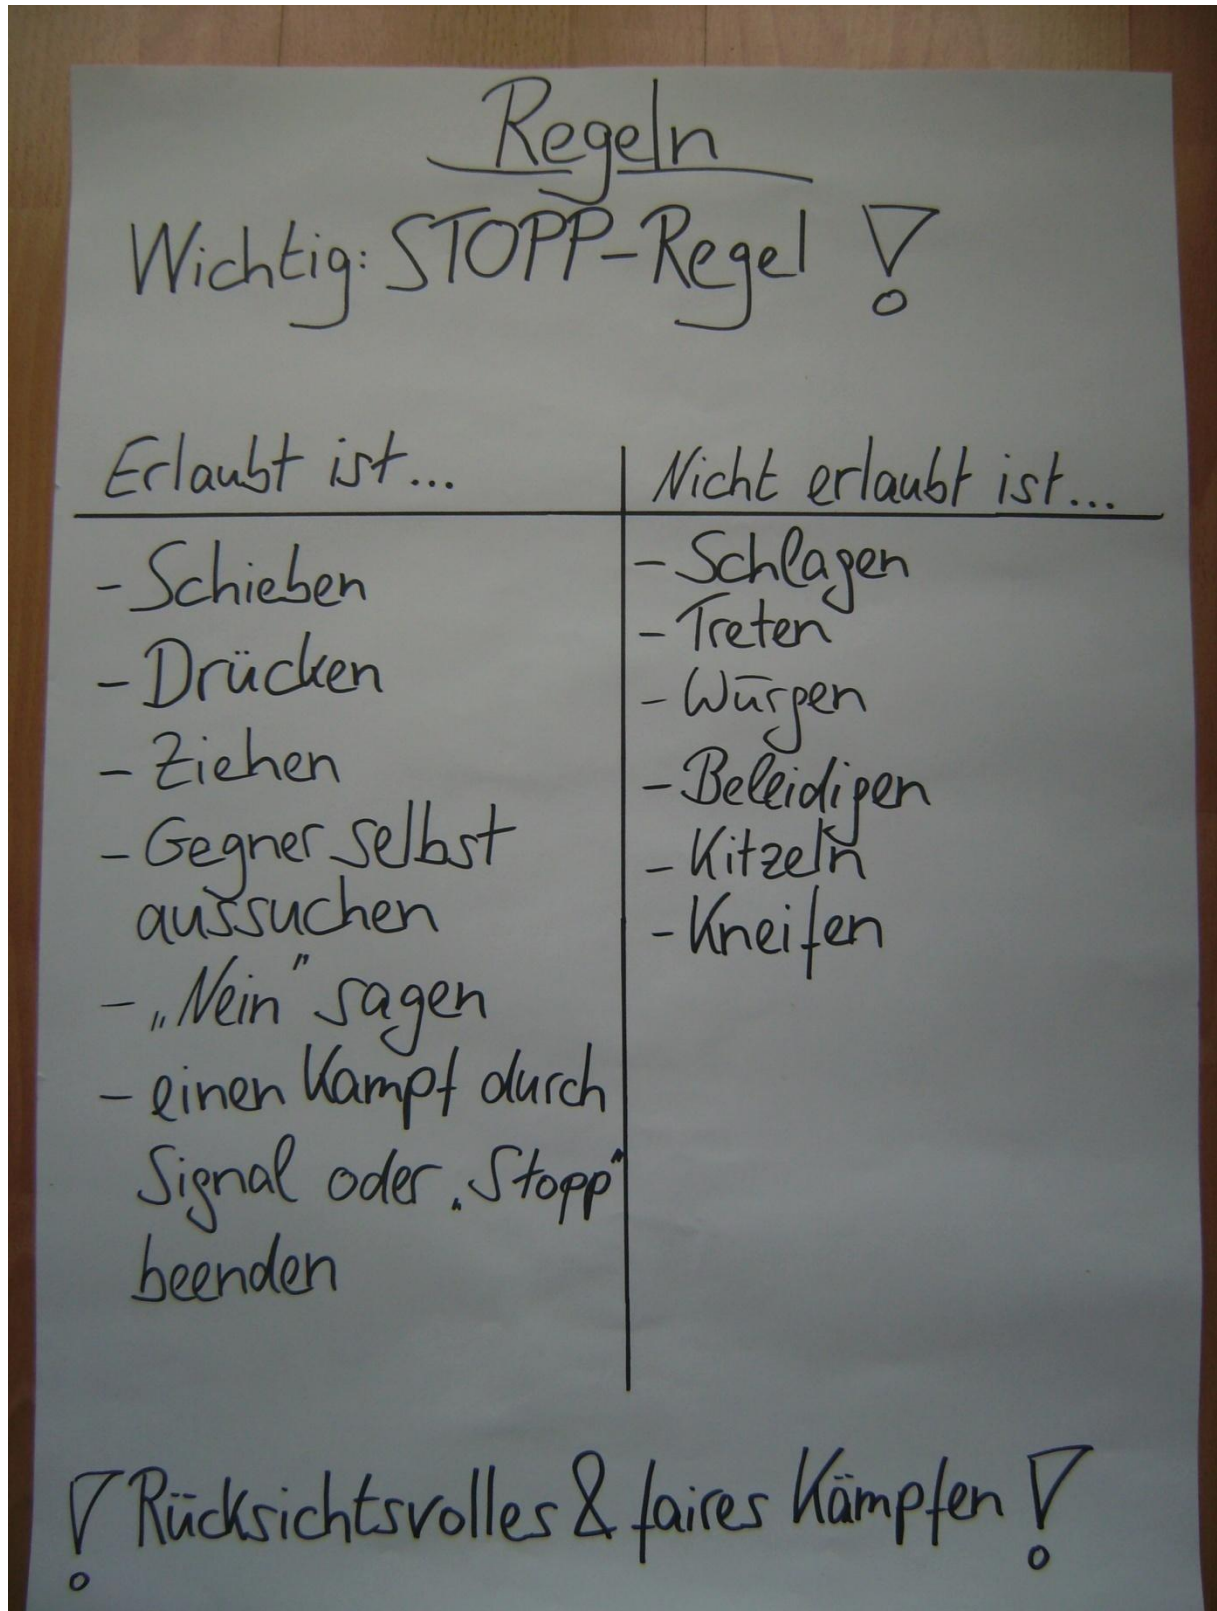 Regeln
Wichtig: STOPP-Regel !
Erlaubt ist...
- Schieben
- Drücken
- Ziehen
- Gegner selbst
aussuchen
- „Nein" sagen
- einen Kampf durch
Signal oder „Stopp"
beenden
Nicht erlaubt ist...
- Schlagen
- Treten
- Würgen
- Beleidigen
- Kitzeln
- Kneifen
! Rücksichtsvolles & faires Kämpfen !